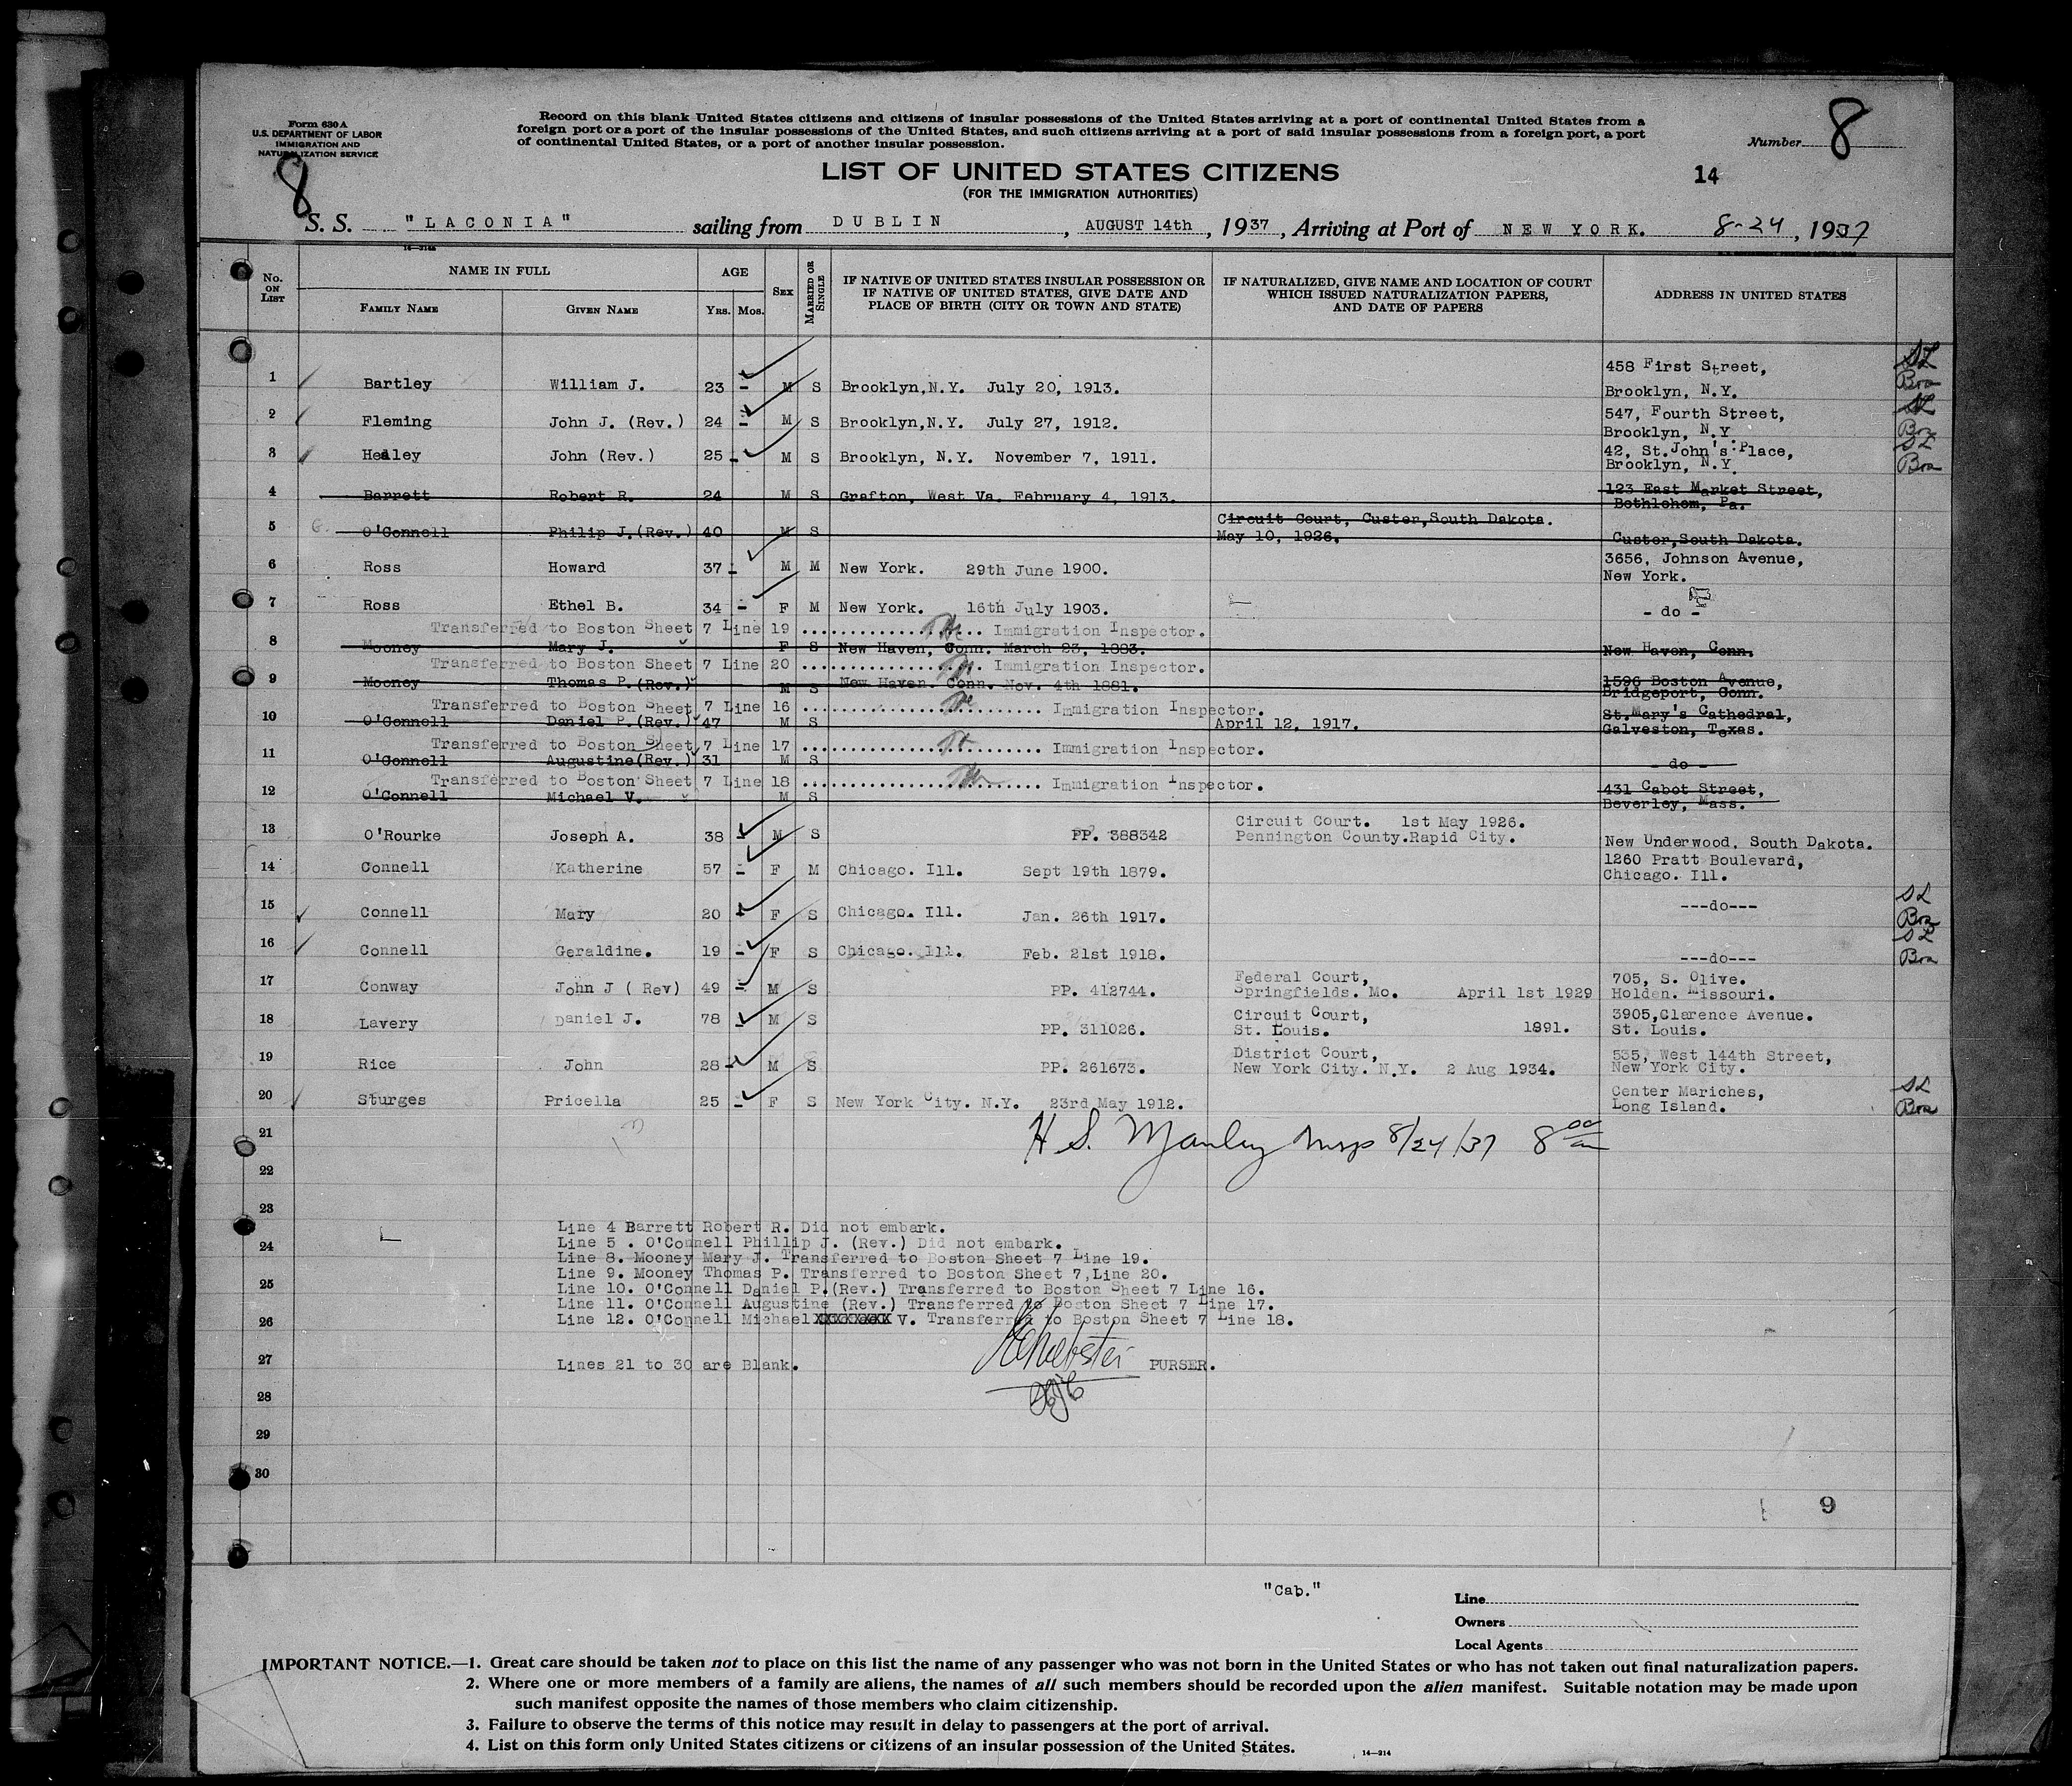 Form 630 A
U.S. DEPARTMENT OF LABOR
IMMIGRATION AND
NATURALIZATION SERVICE
Record on this blank United States citizens and citizens of insular possessions of the United States arriving at a port of continental United States from a
foreign port or a port of the insular possessions of the United States, and such citizens arriving at a port of said insular possessions from a foreign port, a port
of continental United States, or a port of another insular possession.
Number 8
8
LIST OF UNITED STATES CITIZENS
(FOR THE IMMIGRATION AUTHORITIES)
14
S. S. "LACONIA" sailing from DUBLIN, AUGUST 14th, 1937, Arriving at Port of NEW YORK. 8-24, 1937
No. ON LIST
NAME IN FULL
FAMILY NAME
GIVEN NAME
AGE
YRS. MOS.
SEX
MARRIED OR SINGLE
IF NATIVE OF UNITED STATES INSULAR POSSESSION OR
IF NATIVE OF UNITED STATES, GIVE DATE AND
PLACE OF BIRTH (CITY OR TOWN AND STATE)
IF NATURALIZED, GIVE NAME AND LOCATION OF COURT
WHICH ISSUED NATURALIZATION PAPERS,
AND DATE OF PAPERS
ADDRESS IN UNITED STATES
1 Bartley William J. 23 - M S Brooklyn,N.Y. July 20, 1913. 458 First Street,
Brooklyn, N.Y.
2 Fleming John J. (Rev.) 24 - M S Brooklyn,N.Y. July 27, 1912. 547, Fourth Street,
Brooklyn, N.Y.
3 Healey John (Rev.) 25 - M S Brooklyn, N.Y. November 7, 1911. 42, St.John's Place,
Brooklyn, N.Y.
4 Barrett Robert R. 24 M S Grafton, West Va. February 4, 1913. 123 East Market Street,
Bethlehem, Pa.
5 O'Connell Philip J.(Rev.) 40 M S Circuit Court, Custer,South Dakota.
May 10, 1926. Custer,South Dakota.
6 Ross Howard 37 - M M New York. 29th June 1900. 3656, Johnson Avenue,
New York.
7 Ross Ethel B. 34 - F M New York. 16th July 1903. - do -
Transferred to Boston Sheet 7 Line 19 Immigration Inspector.
8 Mooney Mary J. F S New Haven, Conn. March 23, 1883. New Haven, Conn.
Transferred to Boston Sheet 7 Line 20 Immigration Inspector.
9 Mooney Thomas P.(Rev.) M S New Haven. Conn. Nov. 4th 1881. 1596 Boston Avenue,
Bridgeport, Conn.
Transferred to Boston Sheet 7 Line 16 Immigration Inspector.
10 O'Connell Daniel P.(Rev.) 47 M S April 12, 1917. St.Mary's Cathedral,
Galveston, Texas.
Transferred to Boston Sheet 7 Line 17 Immigration Inspector.
11 O'Connell Augustine(Rev.) 31 M S - do -
Transferred to Boston Sheet 7 Line 18 Immigration Inspector.
12 O'Connell Michael V. M S 431 Cabot Street,
Beverley, Mass.
13 O'Rourke Joseph A. 38 - M S PP. 388342 Circuit Court. 1st May 1926.
Pennington County.Rapid City. New Underwood, South Dakota.
14 Connell Katherine 57 - F M Chicago. Ill. Sept 19th 1879. 1260 Pratt Boulevard,
Chicago. Ill.
15 Connell Mary 20 - F S Chicago. Ill. Jan. 26th 1917. ---do---
16 Connell Geraldine. 19 - F S Chicago. Ill. Feb. 21st 1918. ---do---
17 Conway John J ( Rev) 49 - M S PP. 412744. Federal Court,
Springfields. Mo. April 1st 1929 705, S. Olive.
Holden. Missouri.
18 Lavery Daniel J. 78 - M S PP. 311026. Circuit Court,
St. Louis. 1891. 3905,Clarence Avenue.
St. Louis.
19 Rice John 28 - M S PP. 261673. District Court,
New York City. N.Y. 2 Aug 1934. 535, West 144th Street,
New York City.
20 Sturges Pricella 25 - F S New York City. N.Y. 23rd May 1912. Center Mariches,
Long Island.
21
H S. Manley Insp 8/24/37 8 00 am
22
23
24
25
26
27
28
29
30
Line 4 Barrett Robert R. Did not embark.
Line 5 . O'Connell Phillip J. (Rev.) Did not embark.
Line 8. Mooney Mary J. Transferred to Boston Sheet 7 Line 19.
Line 9. Mooney Thomas P. Transferred to Boston Sheet 7,Line 20.
Line 10. O'Connell Daniel P.(Rev.) Transferred to Boston Sheet 7 Line 16.
Line 11. O'Connell Augustine (Rev.) Transferred to Boston Sheet 7 Line 17.
Line 12. O'Connell Michael V. Transferred to Boston Sheet 7 Line 18.
Lines 21 to 30 are Blank.
PURSER.
9
"Cab."
Line
Owners
Local Agents
IMPORTANT NOTICE.—1. Great care should be taken not to place on this list the name of any passenger who was not born in the United States or who has not taken out final naturalization papers.
2. Where one or more members of a family are aliens, the names of all such members should be recorded upon the alien manifest. Suitable notation may be made upon
such manifest opposite the names of those members who claim citizenship.
3. Failure to observe the terms of this notice may result in delay to passengers at the port of arrival.
4. List on this form only United States citizens or citizens of an insular possession of the United States.
14—214